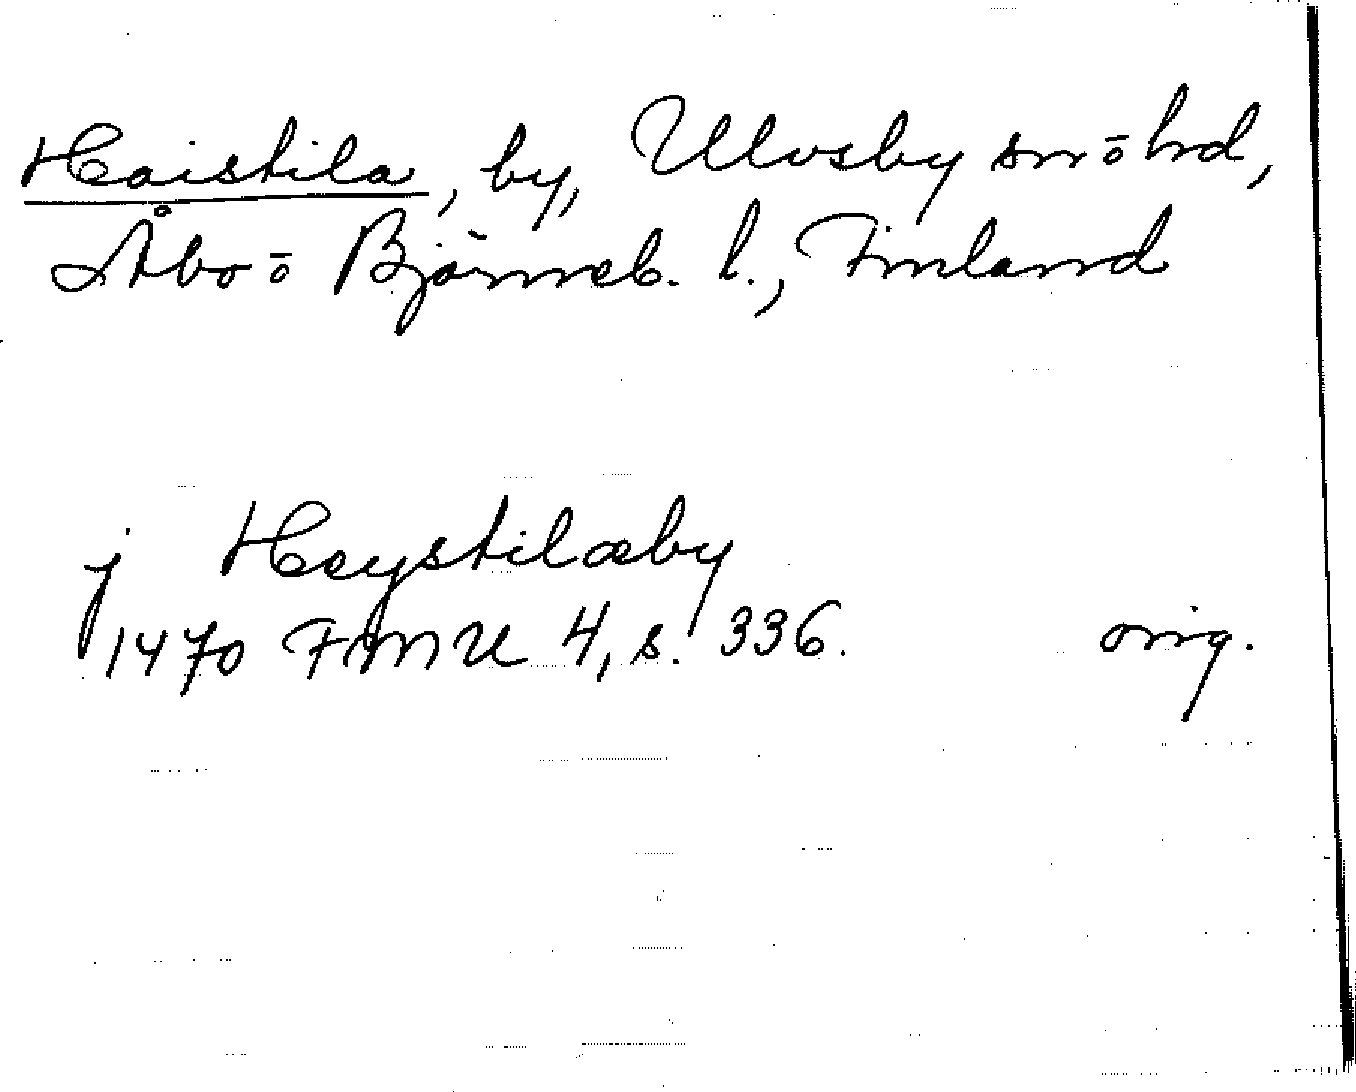 Haistila, by, Ulvsby sn o hd,
Åbo o Björneb. l., Finland
j Heystilæby
1470 FMU 4, s. 336. orig.